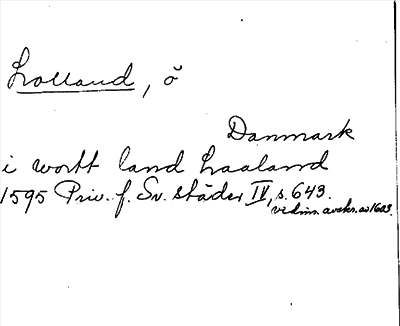 Lolland, ö
Danmark
i wortt land Laaland
1595 Priv. f. Sv. städer IV, s. 643.
vidim. avskr. av 1603.